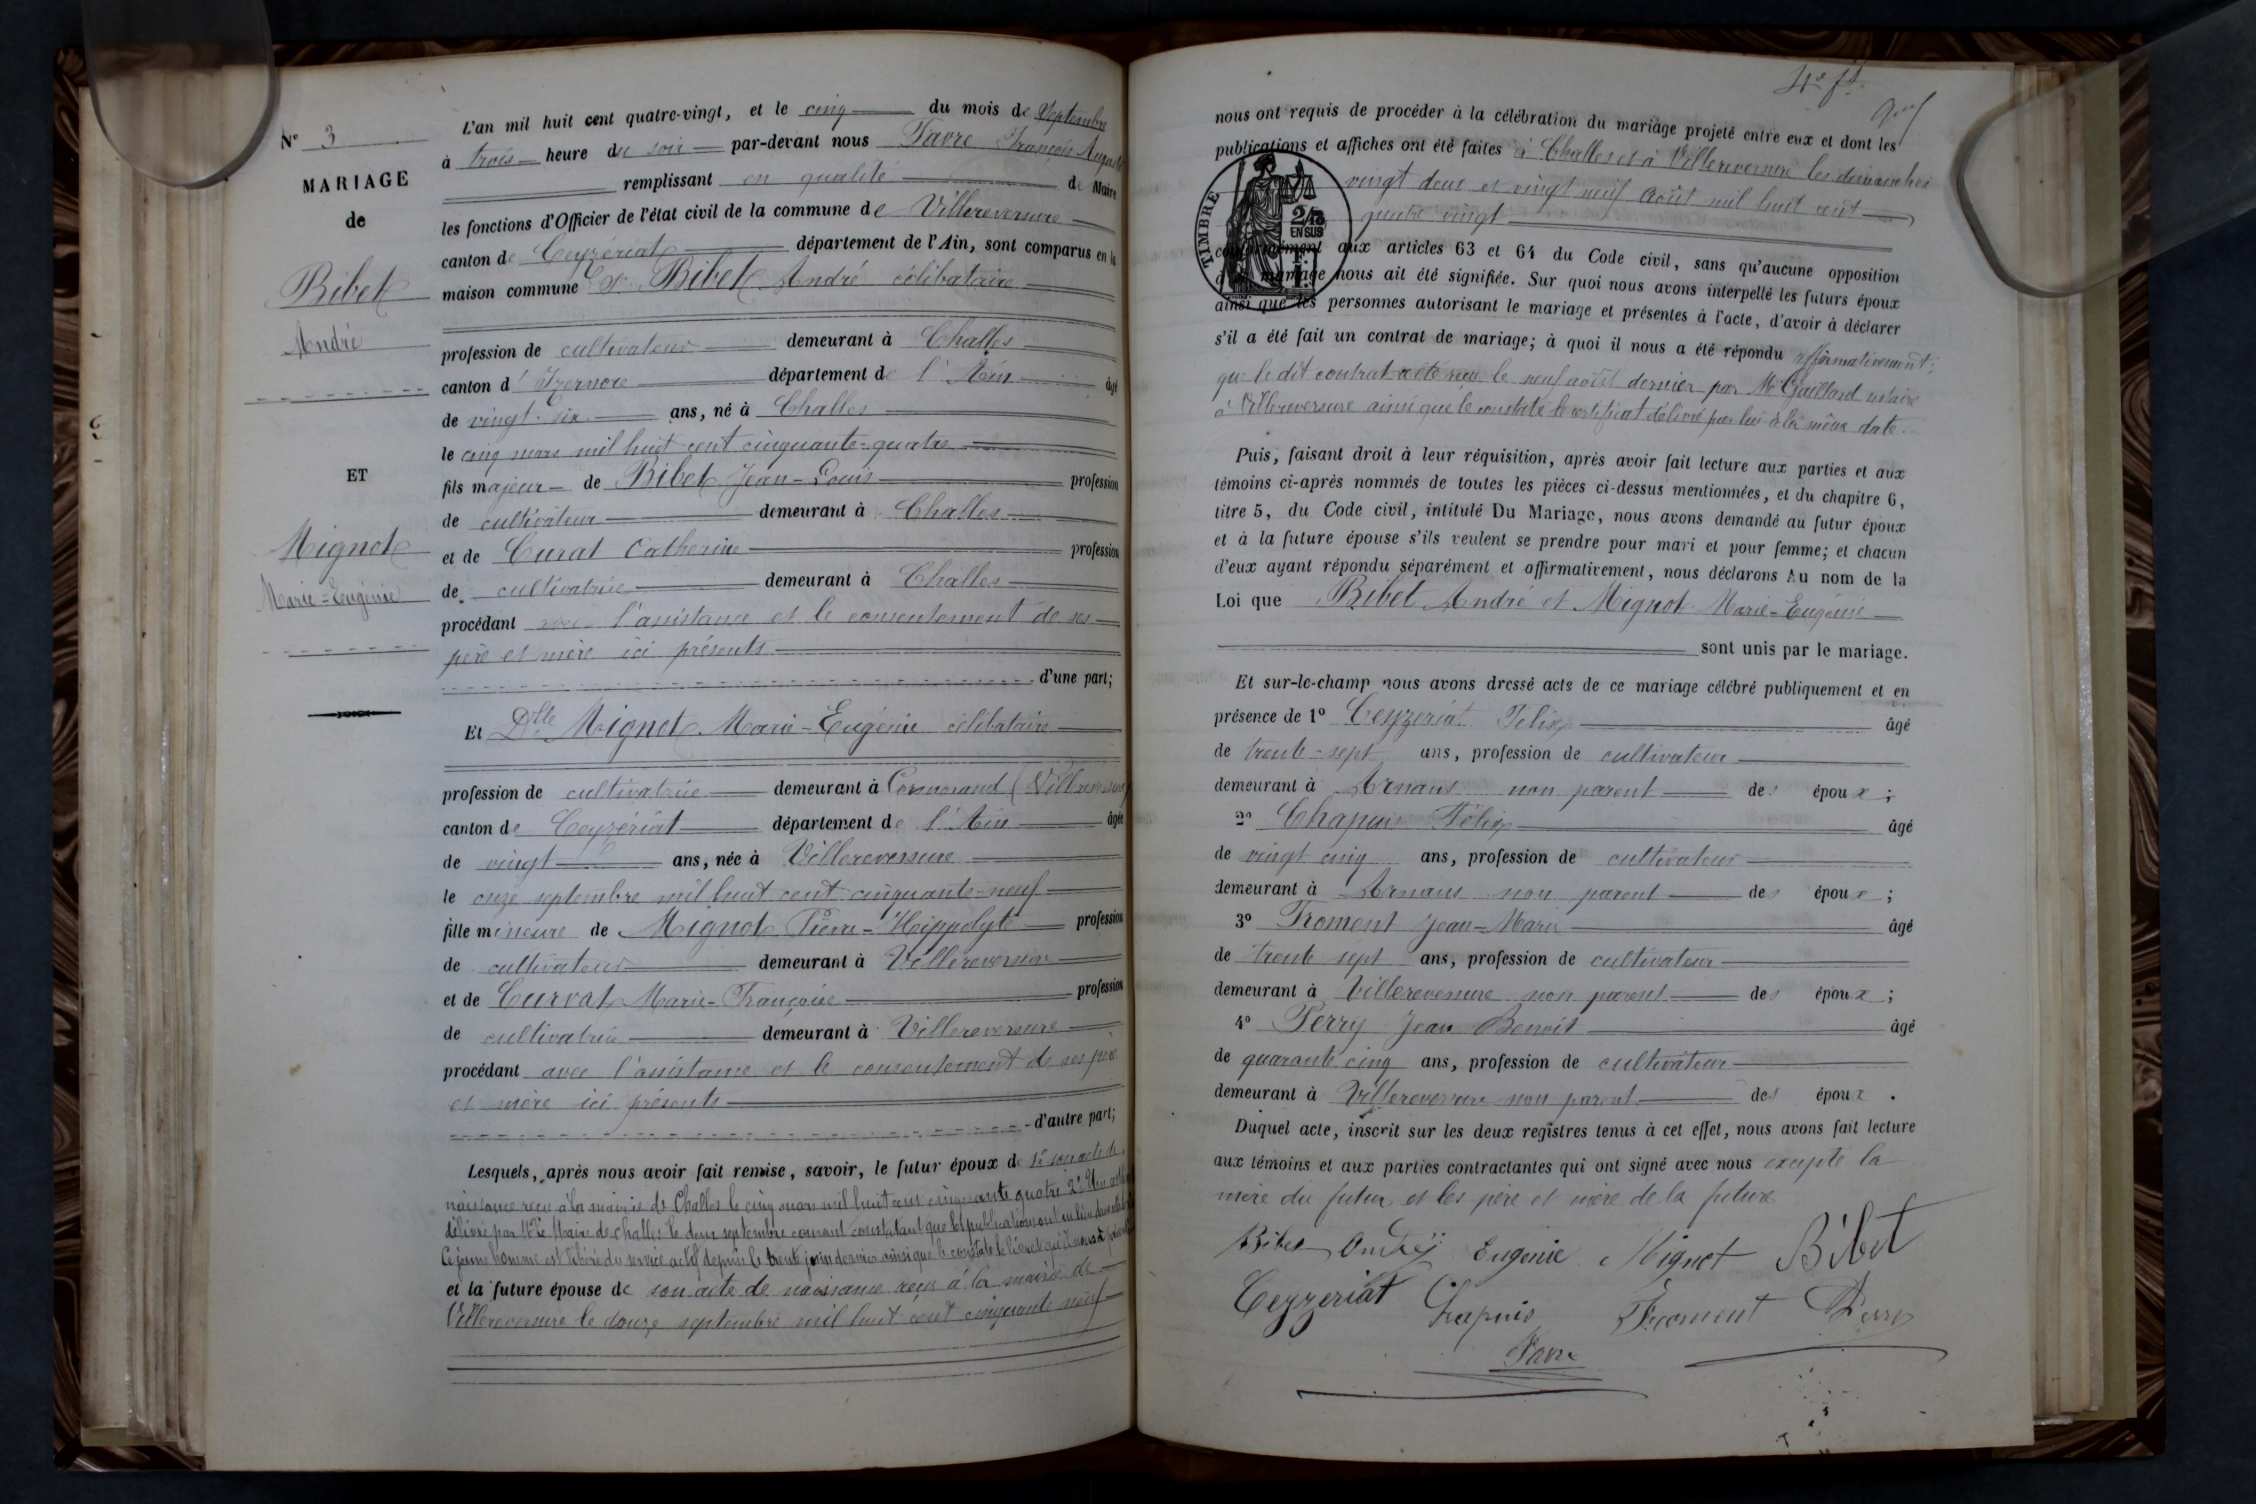 N° 3
MARIAGE
de
Bibet
André
ET
Mignot
Marie-Eugénie
L'an mil huit cent quatre-vingt, et le cinq du mois de Septembre
à trois heure du soir par-devant nous Favre François Auguste
remplissant en qualité de Maire
les fonctions d'Officier de l'état civil de la commune de Villereversure
canton de Ceyzériat département de l'Ain, sont comparus en la
maison commune Sr Bibet André célibataire
profession de cultivateur demeurant à Challes
canton d'Izernore département de l'Ain âgé
de vingt-six ans, né à Challes
le cinq mars mil huit cent cinquante-quatre
fils majeur de Bibet Jean-Louis profession
de cultivateur demeurant à Challes
et de Curat Catherine profession
de cultivatrice demeurant à Challes
procédant avec l'assistance et le consentement de ses
père et mère ici présents
d'une part;
Et Dlle Mignot Marie-Eugénie célibataire
profession de cultivatrice demeurant à (Villereversure)
canton de Ceyzériat département de l'Ain âgée
de vingt ans, née à Villereversure
le onze septembre mil huit cent cinquante-neuf
fille mineure de Mignot Pierre-Hippolyte profession
de cultivateur demeurant à Villereversure
et de Curvat Marie-Françoise profession
de cultivatrice demeurant à Villereversure
procédant avec l'assistance et le consentement de ses père
et mère ici présents
d'autre part;
Lesquels, après nous avoir fait remise, savoir, le futur époux de 1° son acte de
naissance reçu à la mairie de Challes le cinq mars mil huit cent cinquante quatre 2° Un
délivré par Mr le Maire de Challes le deux septembre courant constatant que les publications ont eu lieu dans
Ce jeune homme est libéré du service actif depuis le trente juin dernier ainsi que le constate le livret qu'il nous a
et la future épouse de son acte de naissance reçu à la mairie de
Villereversure le douze septembre mil huit cent cinquante neuf
nous ont requis de procéder à la célébration du mariage projeté entre eux et dont les
publications et affiches ont été faites à Challes et à Villereversure les dimanches
vingt deux et vingt neuf août mil huit cent
quatre vingt
TIMBRE
2/10
EN SUS
conformément aux articles 63 et 64 du Code civil, sans qu'aucune opposition
à ce mariage nous ait été signifiée. Sur quoi nous avons interpellé les futurs époux
ainsi que les personnes autorisant le mariage et présentes à l'acte, d'avoir à déclarer
s'il a été fait un contrat de mariage; à quoi il nous a été répondu affirmativement;
que le dit contrat a été reçu le neuf août dernier par Me Gaillard notaire
à Villereversure ainsi que le constate le certificat délivré par lui à la même date.
Puis, faisant droit à leur réquisition, après avoir fait lecture aux parties et aux
témoins ci-après nommés de toutes les pièces ci-dessus mentionnées, et du chapitre 6,
titre 5, du Code civil, intitulé Du Mariage, nous avons demandé au futur époux
et à la future épouse s'ils veulent se prendre pour mari et pour femme; et chacun
d'eux ayant répondu séparément et affirmativement, nous déclarons Au nom de la
Loi que Bibet André et Mignot Marie-Eugénie
sont unis par le mariage.
Et sur-le-champ nous avons dressé acte de ce mariage célébré publiquement et en
présence de 1° Ceyzeriat Félix âgé
de trente-sept ans, profession de cultivateur
demeurant à Arnans non parent des époux;
2° Chapuis Félix âgé
de vingt cinq ans, profession de cultivateur
demeurant à Arnans non parent des époux;
3° Froment Jean-Marie âgé
de trente sept ans, profession de cultivateur
demeurant à Villereversure non parent des époux;
4° Perry Jean Benoit âgé
de quarante cinq ans, profession de cultivateur
demeurant à Villereversure non parent des époux.
Duquel acte, inscrit sur les deux registres tenus à cet effet, nous avons fait lecture
aux témoins et aux parties contractantes qui ont signé avec nous excepté la
mère du futur et les père et mère de la future
Bibet André Eugenie Mignot Bibet
Ceyzeriat Chapuis Froment Perry
Favre